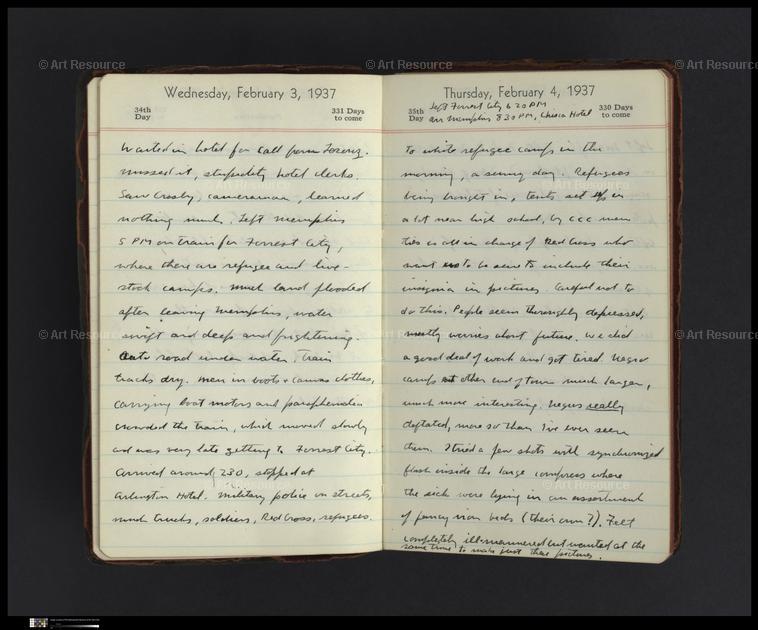 © Art Resource © Art Resource © Art Resource
Wednesday, February 3, 1937
34th Day 331 Days to come
Waited in hotel for call from
missed it, stupidity hotel clerks.
Saw Crosby, cameraman, learned
nothing much. Left Memphis
5 PM on train for Forrest City,
where there are refugee and live-
stock camps. Much land flooded
after leaving Memphis, water
swift and deep and frightening.
Auto road under water, train
tracks dry. Men in boots + canvas clothes,
carrying boat motors and paraphernalia
crowded the train, which moved slowly
and was very late getting to Forrest City.
Arrived around 7:30, stopped at
Arlington Hotel. Military police on streets,
much trucks, soldiers, Red Cross, refugees.
Thursday, February 4, 1937
35th Day 330 Days to come
Left Forrest City 6 20 PM
arr Memphis 8 30 PM, Chisca Hotel
To white refugee camps in the
morning, a sunny day. Refugees
being brought in, tents set up in
a lot near high school, by CCC men
This is all in charge of Red Cross who
want us to be sure to include their
insignia in pictures. Careful not to
do this. People seem thoroughly depressed,
mostly worries about future. We did
a good deal of work and got tired. Negro
camp at other end of town much larger,
much more interesting. Negros really
deflated, more so than I've ever seen
them. I tried a few shots with synchronized
flash inside the large compress where
the sick were lying in an assortment
of fancy iron beds (their own?). Felt
completely ill-mannered but wanted at the
same time to make just these pictures.
© Art Resource © Art Resource © Art Resource
© Art Resource © Art Resource